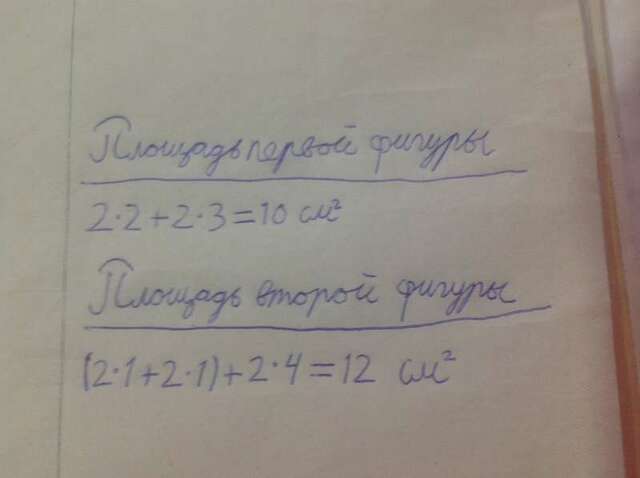 Площадь первой фигуры
2·2+2·3=10 см²
Площадь второй фигуры
(2·1+2·1)+2·4=12 см²